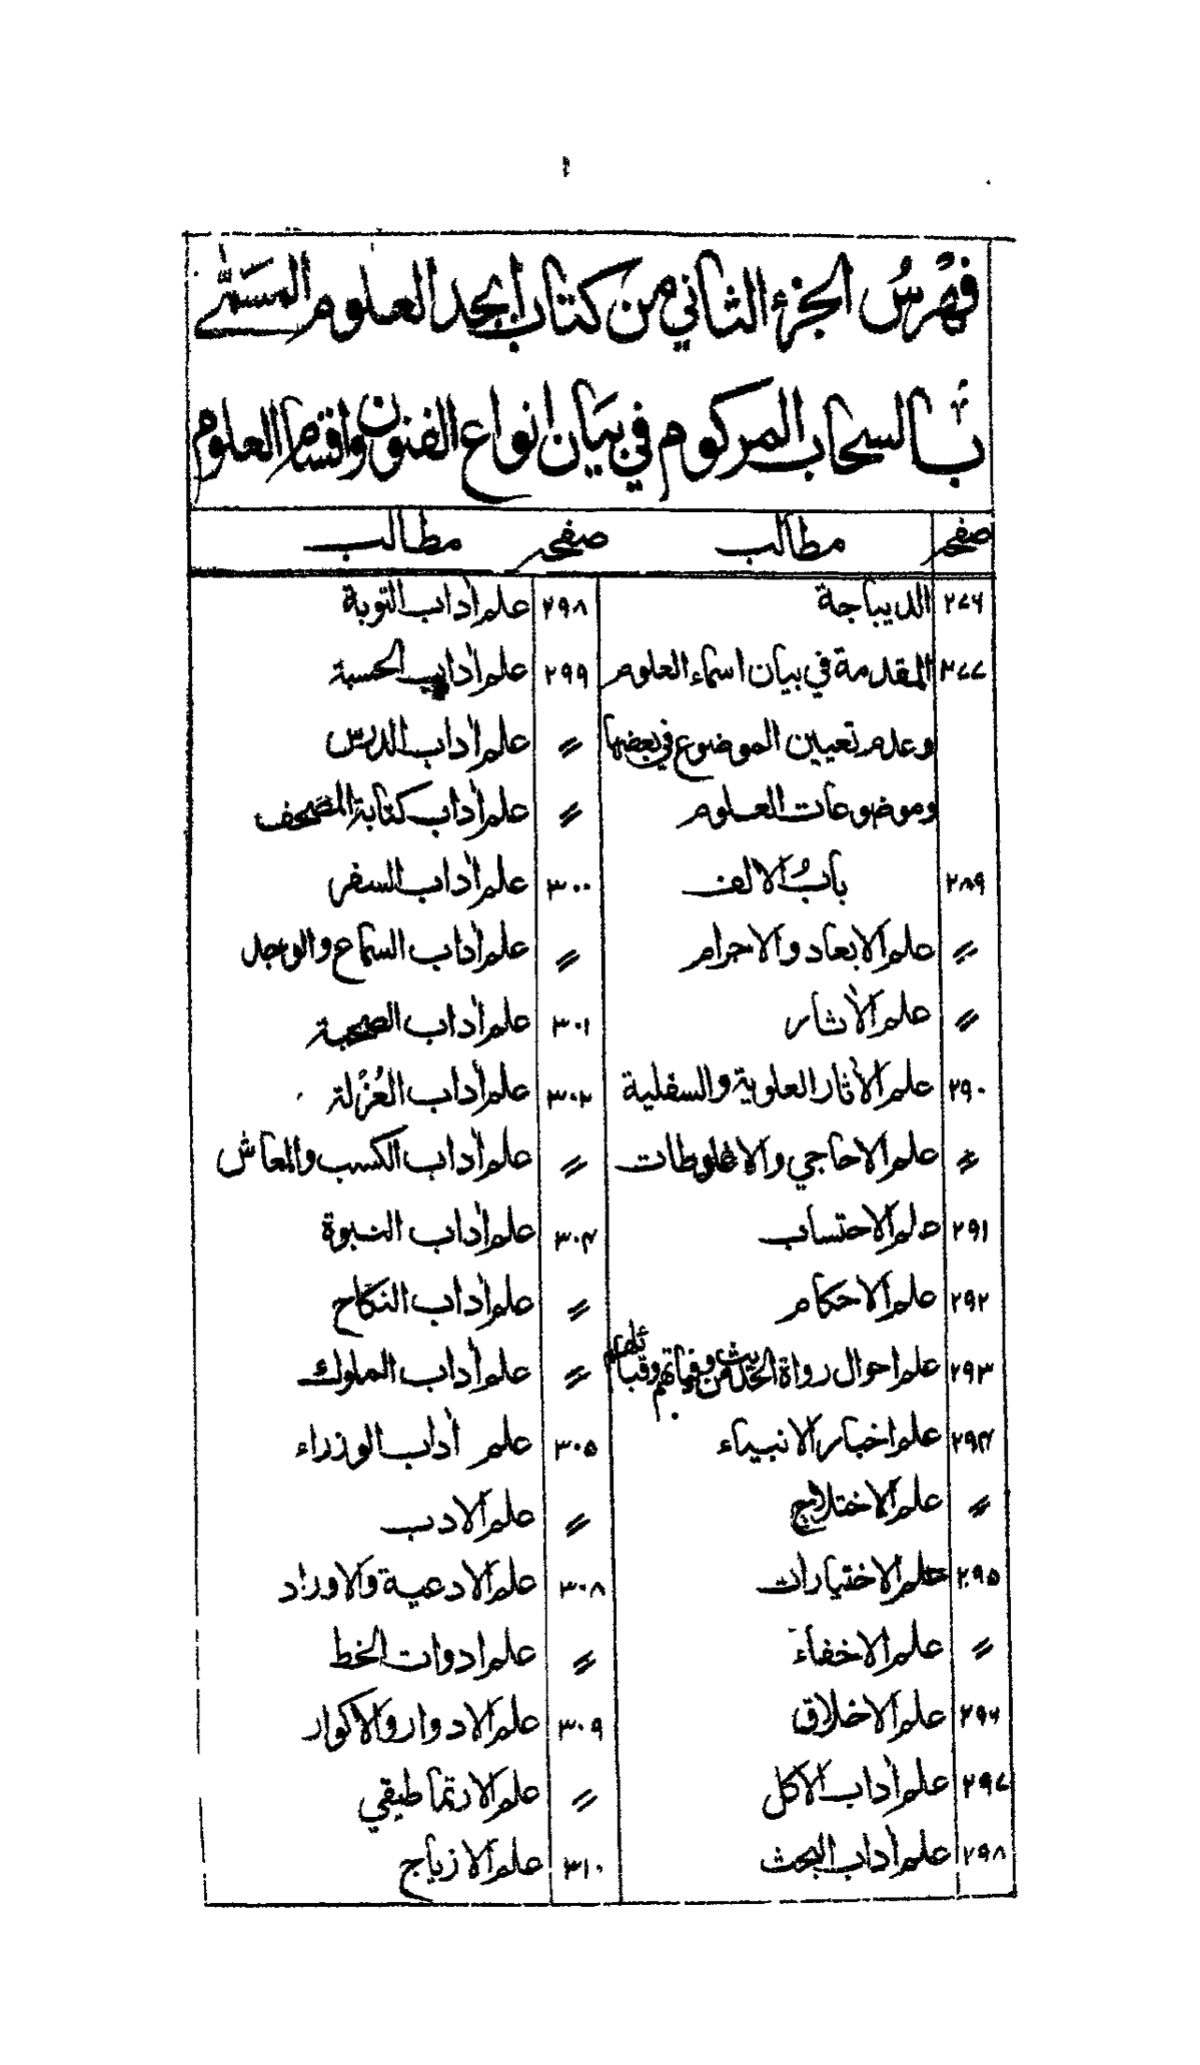 فهرس الجزء الثاني من كتاب ابجد العلوم المسمى
بالسحاب المركوم في بيان انواع الفنون واقسام العلوم
صفحه مطالب صفحه مطالب
٢٧٦ الديباجة ٢٩٨ علم اداب التوبة
٢٧٧ المقدمة في بيان اسماء العلوم ٢٩٩ علم اداب الحسبة
وعدم تعيين الموضوع في بعضها 〃 علم اداب الدرس
وموضوعات العلوم 〃 علم اداب كتابة المصحف
٢٨٩ بابُ الالف ٣٠٠ علم اداب السفر
〃 علم الابعاد والاجرام 〃 علم اداب السماع والوجد
〃 علم الأثار ٣٠١ علم اداب الصحبة
٢٩٠ علم الأثار العلوية والسفلية ٣٠٢ علم اداب العُزلة
〃 علم الاحاجي والاغلوطات 〃 علم اداب الكسب والمعاش
٢٩١ علم الاحتساب ٣٠٤ علم اداب النبوة
٢٩٢ علم الاحكام 〃 علم اداب النكاح
٢٩٣ علم احوال رواة الحديث من وفياتهم وقبائلهم 〃 علم اداب الملوك
٢٩٤ علم اخبار الانبياء ٣٠٥ علم اداب الوزراء
〃 علم الاختلاج 〃 علم الادب
٢٩٥ علم الاختيارات ٣٠٨ علم الادعية والاوراد
〃 علم الاخفاء 〃 علم ادوات الخط
٢٩٦ علم الاخلاق ٣٠٩ علم الادوار والاكوار
٢٩٧ علم اداب الاكل 〃 علم الارتماطيقي
٢٩٨ علم اداب البحث ٣١٠ علم الازياج